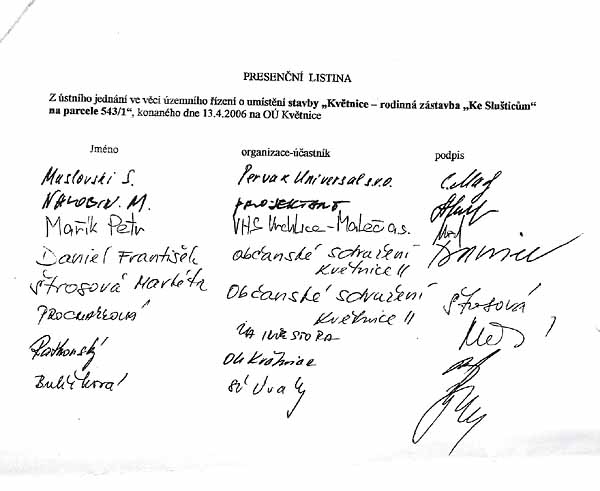 PRESENČNÍ LISTINA
Z ústního jednání ve věci územního řízení o umístění stavby „Květnice – rodinná zástavba „Ke Slušticům“
na parcele 543/1“, konaného dne 13.4.2006 na OÚ Květnice
Jméno organizace-účastník podpis
Muslovski S. Pervax Universal s.r.o.
M. PROJEKTANT
Mařík Petr VHS Vrchlice-Maleč a.s.
Daniel František občanské sdružení
Květnice II
Štrosová Markéta Občanské sdružení Štrosová
Květnice II
PROCHÁZKOVÁ ZA INVESTORA
OÚ Květnice
SÚ Úvaly